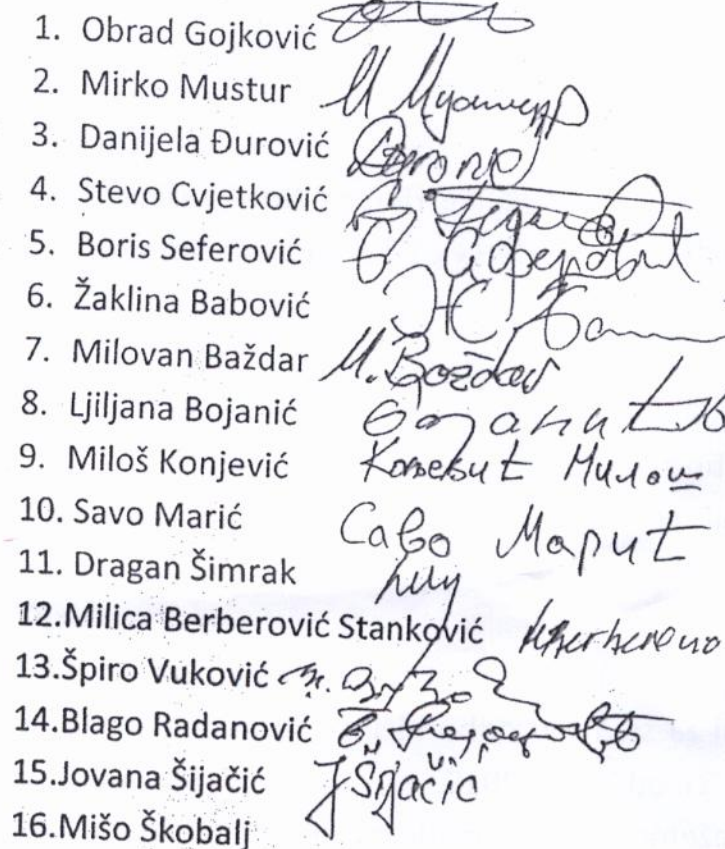 1. Obrad Gojković
2. Mirko Mustur М Мустур
3. Danijela Đurović
4. Stevo Cvjetković
5. Boris Seferović Б Сеферовић
6. Žaklina Babović Ж
7. Milovan Baždar M. Boždar
8. Ljiljana Bojanić Бојанић
9. Miloš Konjević Коњевић Милош
10. Savo Marić Саво Марић
11. Dragan Šimrak
12.Milica Berberović Stanković
13.Špiro Vuković
14.Blago Radanović
15.Jovana Šijačić J Šijačić
16.Mišo Škobalj